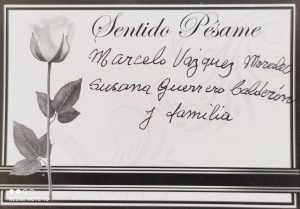 Sentido Pésame
Marcelo Vázquez
Susana Guerrero Calderón
y familia